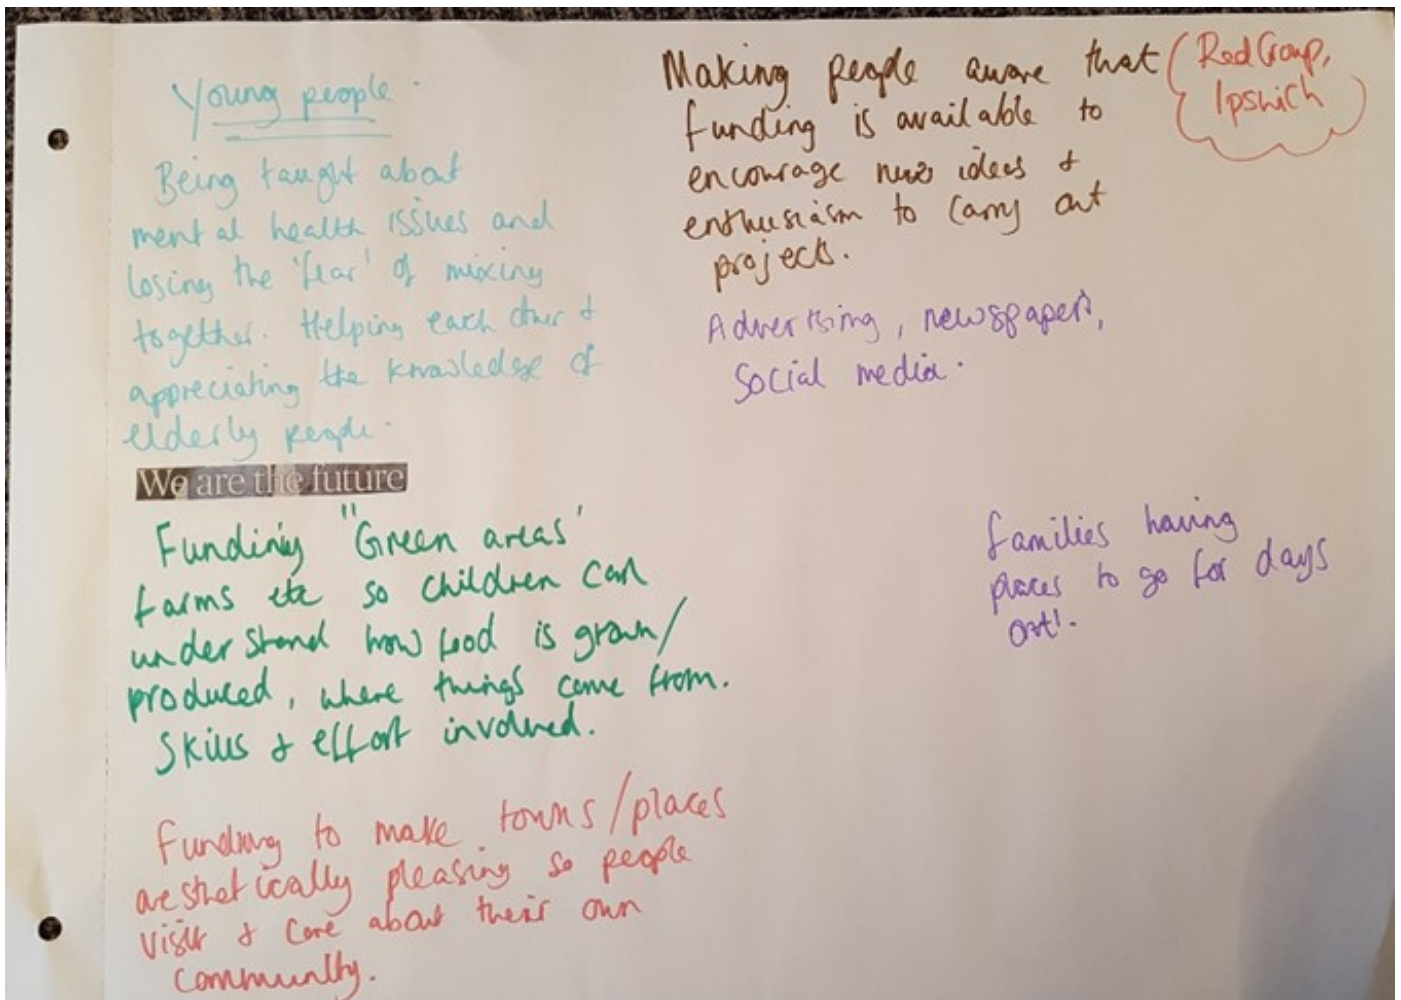 Young people.
Being taught about
mental health issues and
losing the 'fear' of mixing
together. Helping each other &
appreciating the knowledge of
elderly people.
We are the future
Funding "Green areas'
farms etc so children can
understand how food is grown/
produced, where things come from.
Skills & effort involved.
Funding to make towns/places
aesthetically pleasing so people
visit & care about their own
community.
Making people aware that
funding is available to
encourage new ideas &
enthusiasm to carry out
projects.
Advertising, newspapers,
Social media.
families having
places to go for days
out!.
Red Group,
Ipswich